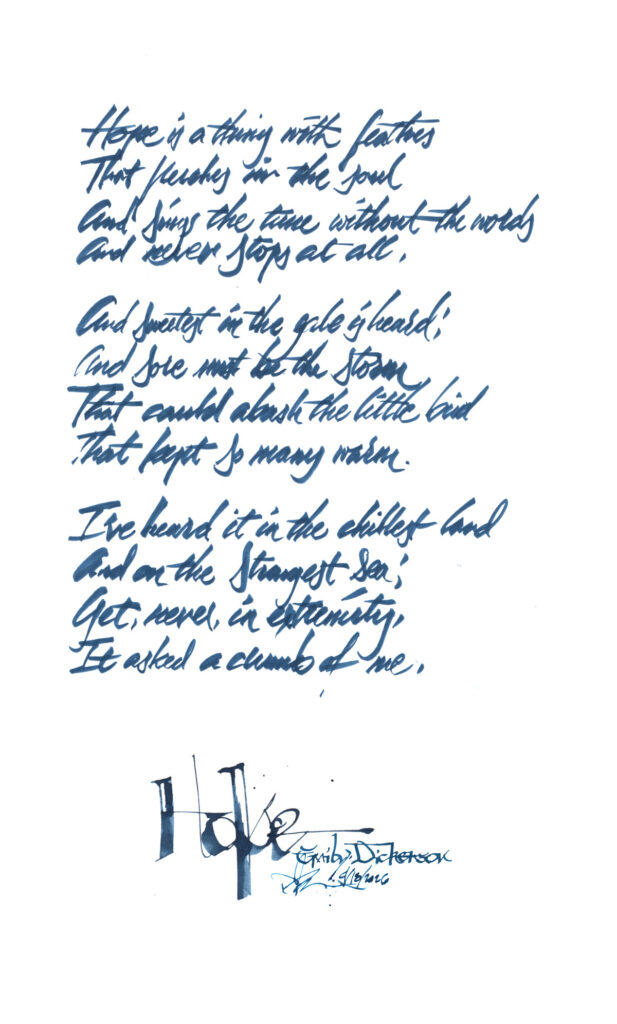 Hope is a thing with feathers
That perches in the soul
And sings the tune without the words
And never stops at all,
And sweetest in the gale is heard;
And sore must be the storm
That could abash the little bird
That kept so many warm.
I've heard it in the chillest land
And on the strangest sea;
Yet, never, in extremity,
It asked a crumb of me.
Hope
Emily Dickerson